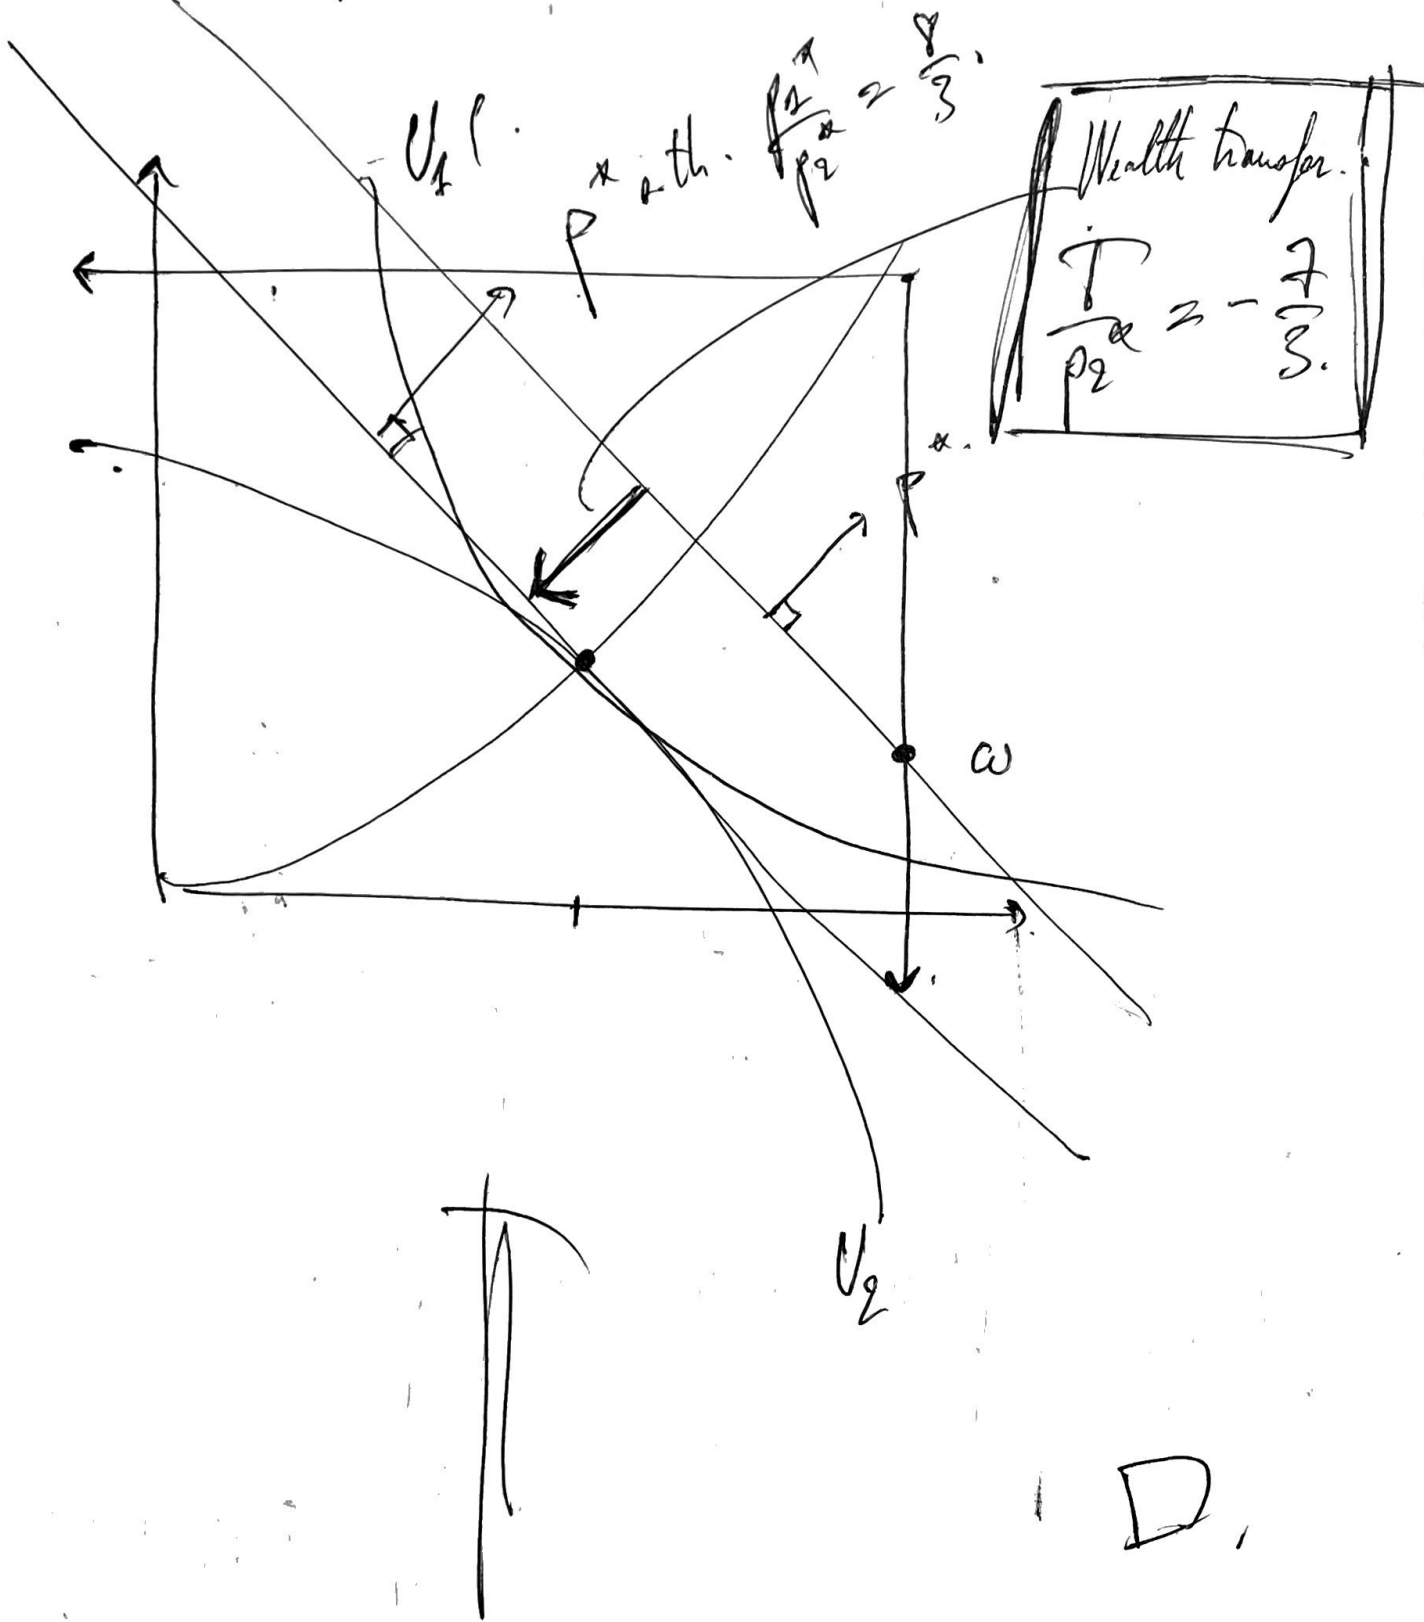 U₁
p* with p₁*/p₂* = 8/3.
Wealth transfer.
T/p₂* = - 7/3.
p*.
ω
U₂
D.